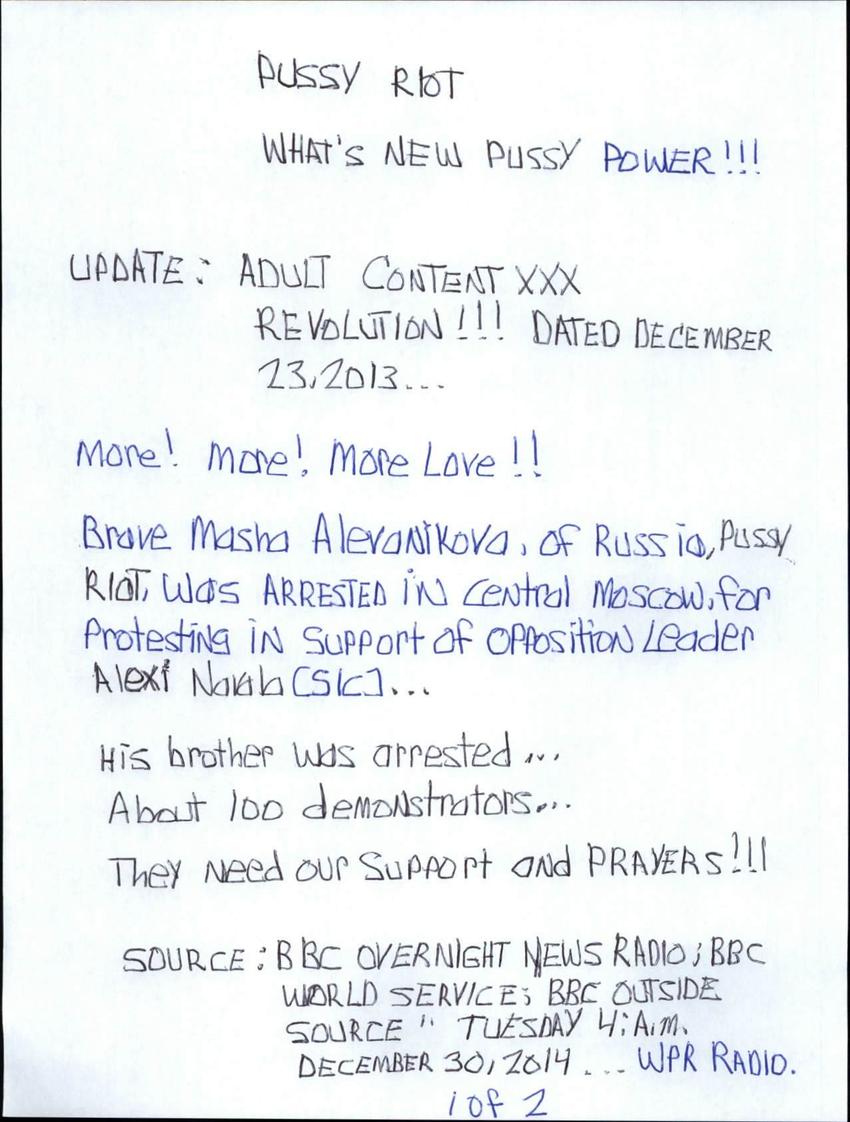 PUSSY RIOT
WHAT'S NEW PUSSY POWER!!!
UPDATE: ADULT CONTENT XXX
REVOLUTION!!! DATED DECEMBER
23, 2013...
More! More! More Love!!
Brave Masha Alevanikova, of Russia, PUSSY
RIOT, Was ARRESTED iN Central Moscow, for
Protesting iN Support of Opposition Leader
Alexi [SIC]...
His brother was arrested...
About 100 demonstrators...
They Need our Support and PRAYERS!!!
SOURCE: BBC OVERNIGHT NEWS RADIO; BBC
WORLD SERVICE; BBC OUTSIDE
SOURCE" TUESDAY 4:A.M.
DECEMBER 30, 2014 ... WPR RADIO.
1 of 2